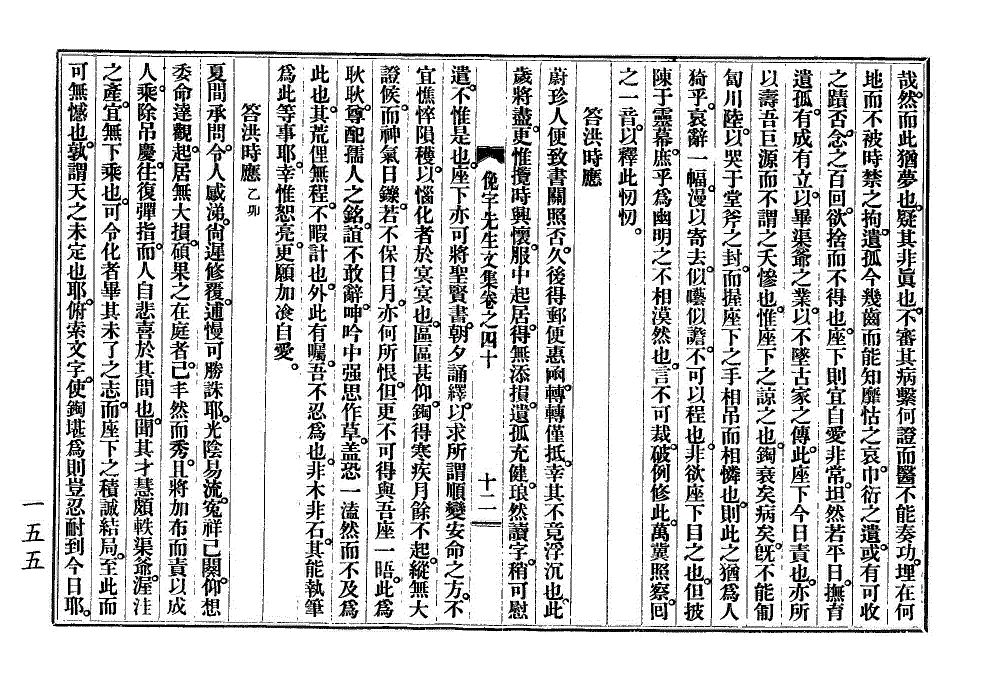 哉然而此猶夢也疑其非眞也不審其病繫何證而醫不能奏功埋在何
地而不被時禁之拘遺孤今幾齒而能知靡怙之哀巾衍之遺或有可收
之蹟否念之百回欲捨而不得也座下則宜自愛非常坦然若平日撫育
遺孤有成有立以畢渠爺之業以不墜古家之傳此座下今日責也亦所
以壽吾巨源而不謂之夭慘也惟座下之諒之也鋾衰矣病矣旣不能匍
匐川陸以哭于堂斧之封而握座下之手相吊而相憐也則此之猶爲人
猗乎哀辭一幅漫以寄去似囈似譫不可以程也非欲座下目之也但披
陳于靈幕庶乎爲幽明之不相漠然也言不可裁破例修此萬冀照察回
之一音以釋此忉忉。
答洪時應
蔚珍人便致書關照否久後得郵便惠函轉轉僅抵幸其不竟浮沉也此
歲將盡更惟攬時興懷服中起居得無添損遺孤充健琅然讀字稍可慰
俛宇先生文集卷之四十 十二
遣不惟是也座下亦可將聖賢書朝夕誦繹以求所謂順變安命之方不
宜憔悴隕穫以惱化者於冥冥也區區甚仰鋾得寒疾月餘不起縱無大
證候而神氣日鑠若不保日月亦何所恨但更不可得與吾座一晤此爲
耿耿尊配孺人之銘誼不敢辭呻吟中强思作草盖恐一溘然而不及爲
此也其荒俚無程不暇計也外此有囑吾不忍爲也非木非石其能執筆
爲此等事耶幸惟恕亮更願加飡自愛。
答洪時應 乙卯
夏間承問令人感涕尙遲修覆逋慢可勝誅耶光陰易流寃祥已闋仰想
委命達觀起居無大損碩果之在庭者已丰然而秀且將加布而責以成
人乘除吊慶往復彈指而人自悲喜於其間也聞其才慧頗軼渠爺渥洼
之產宜無下乘也可令化者畢其未了之志而座下之積誠結局至此而
可無憾也孰謂天之未定也耶俯索文字使鋾堪爲則豈忍耐到今日耶
一五五